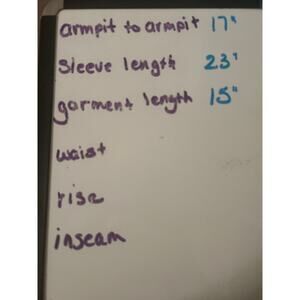 armpit to armpit 17"
Sleeve length 23"
garment length 15"
waist
rise
inseam